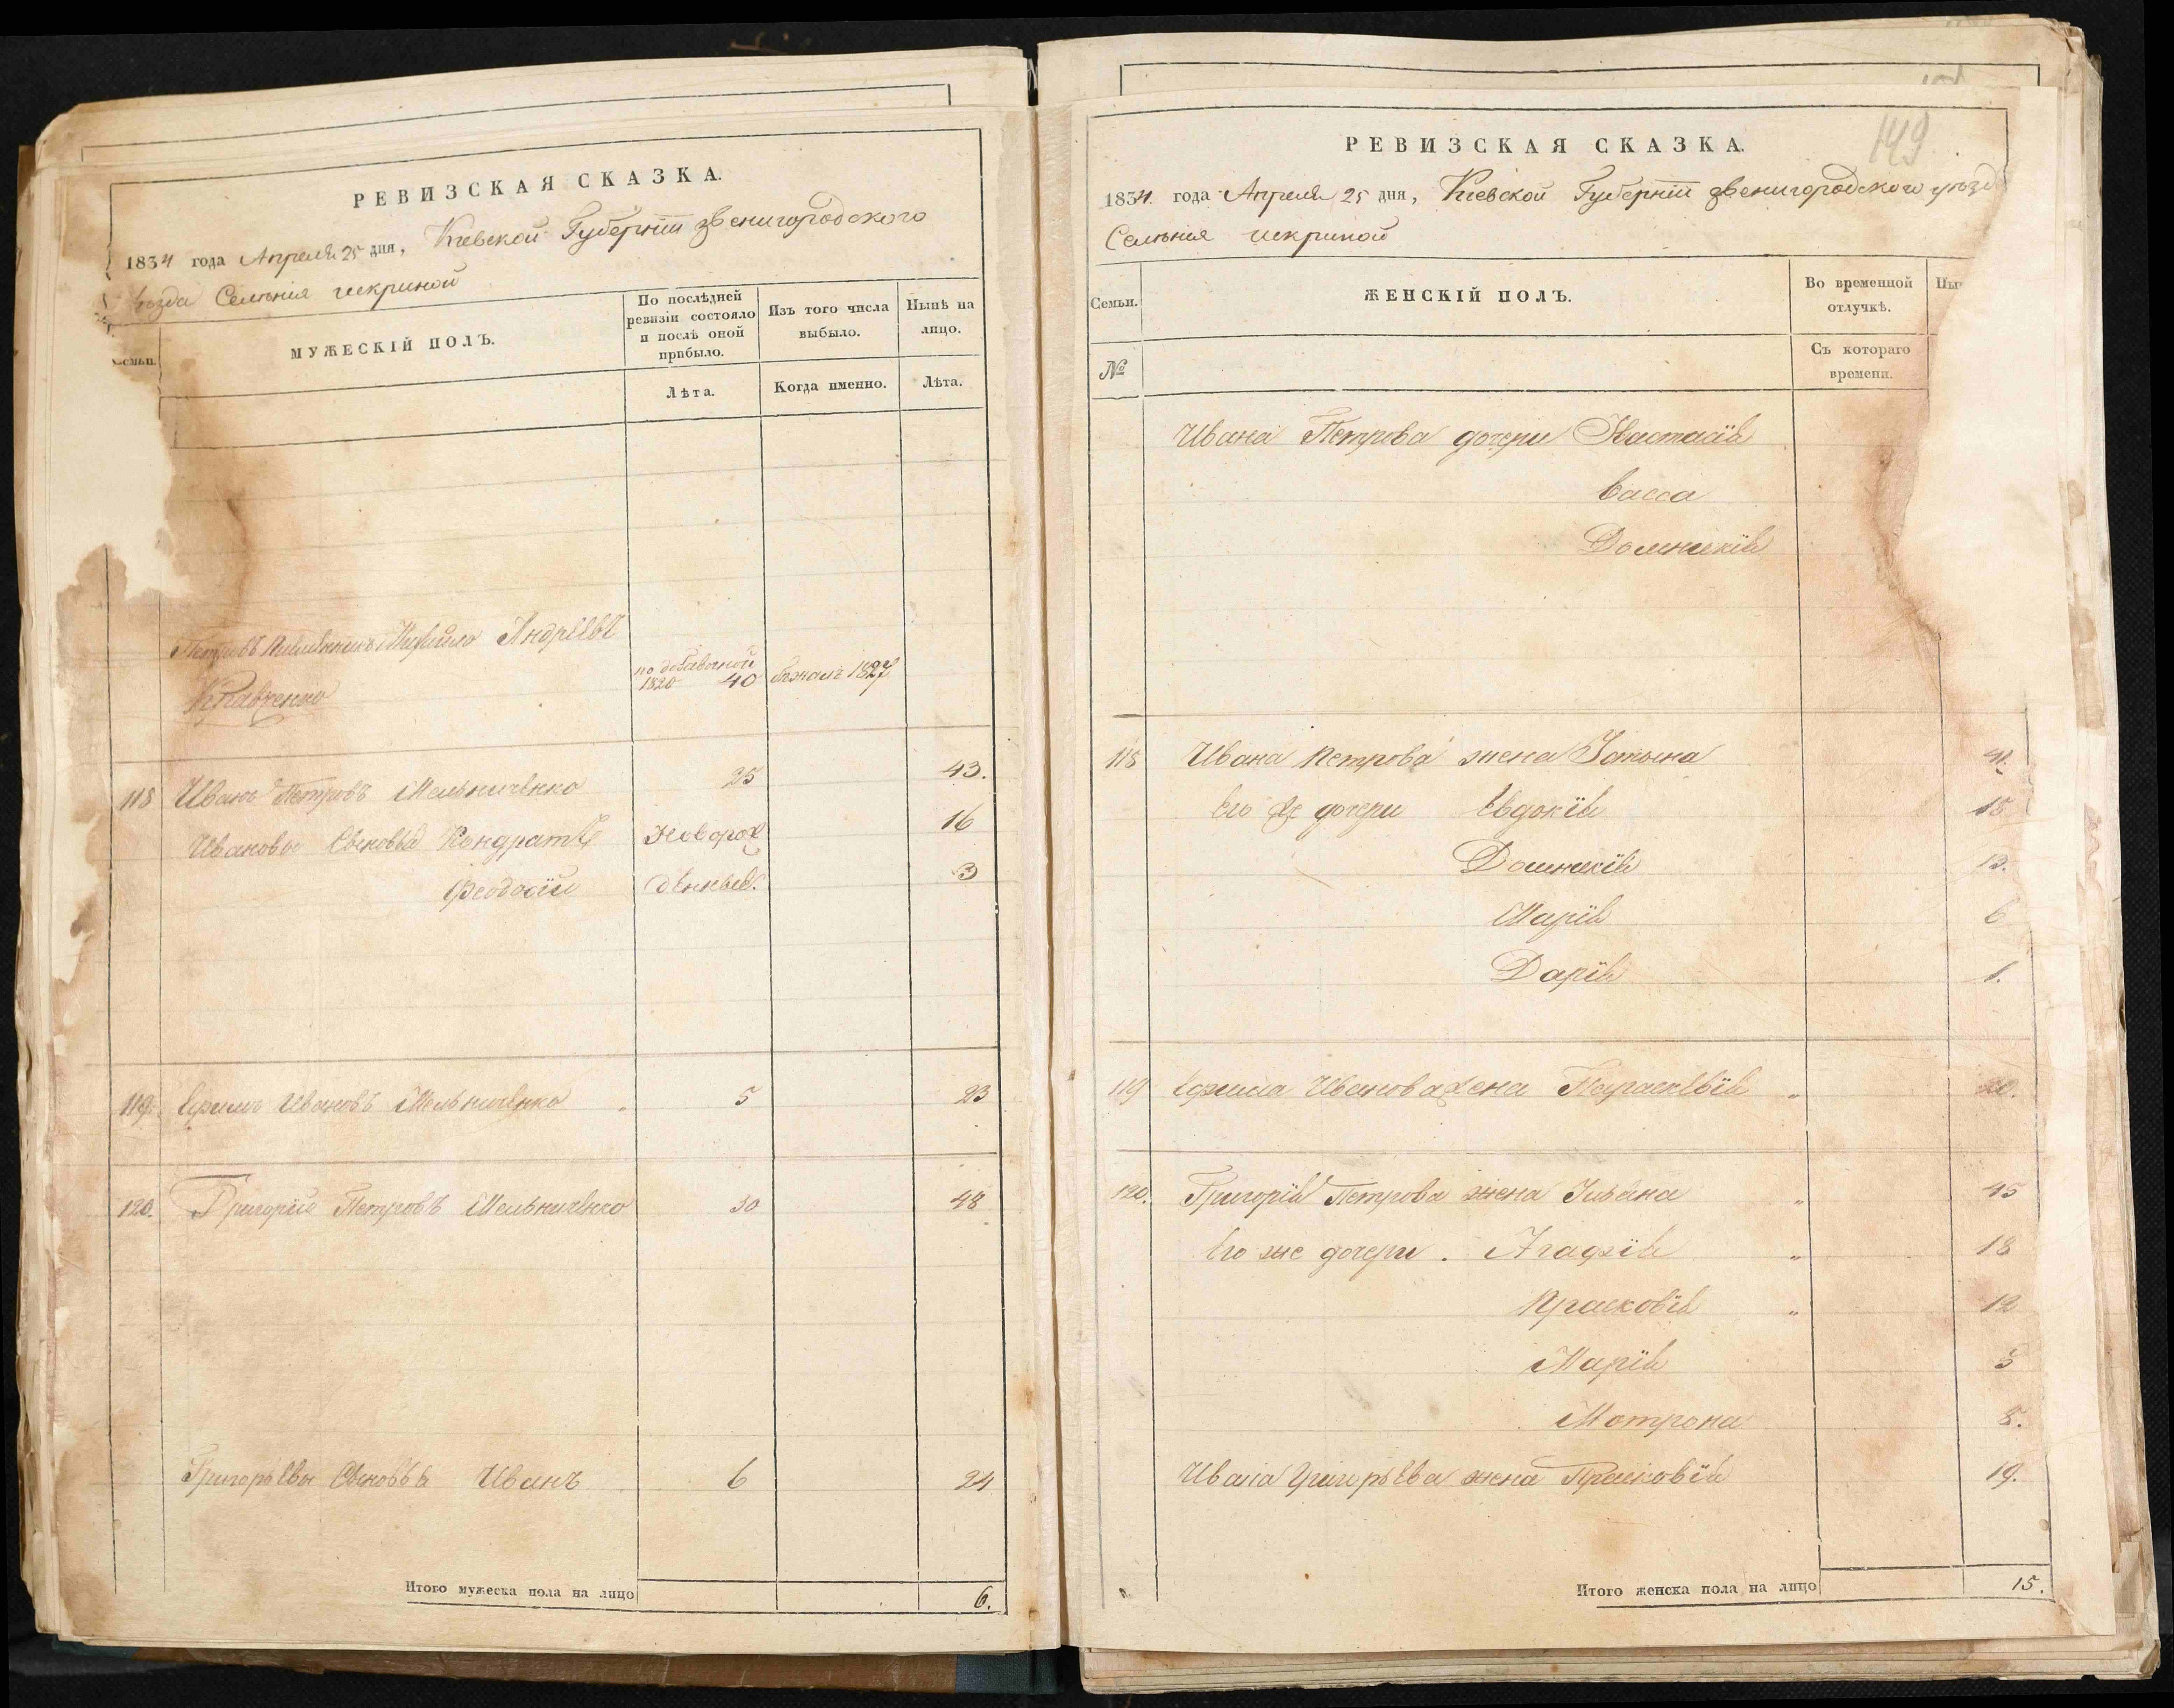 РЕВИЗСКАЯ СКАЗКА.
1834 года Апреля 25 дня, Киевской Губернїи Звенигородского
уезда Селенїя искриной
Семьи.
МУЖЕСКІЙ ПОЛЪ.
По послѣдней ревизіи состояло и послѣ оной прибыло.
Изъ того числа выбыло.
Нынѣ на лицо.
Лѣта.
Когда именно.
Лѣта.
Петровъ племянникъ Михайло Андреевъ
Кравченко
по добавочной 1820 40 бежалъ 1827
118 Иванъ Петровъ Мельниченко 25 43.
Ивановы сыновья Кондратей Новорож 16
Феодосїй денные. 3
119. Ефимъ Ивановъ Мельниченко „ 5 23
120. Григорїй Петровъ Мельниченко 30 48
Григорьевы сыновья Иванъ 6 24
Итого мужеска пола на лицо 6.
149
РЕВИЗСКАЯ СКАЗКА.
1834. года Апреля 25 дня, Киевской Губернїи Звенигородского уезд
Селенїя искриной
Семьи.
ЖЕНСКІЙ ПОЛЪ.
Во временной отлучкѣ.
Ны
№
Съ котораго времени.
Ивана Петрова дочери Настасїя
Васса
Домникїя
118 Ивана Петрова жена Татьяна 41.
Его же дочери Евдокїя 15
Домникїя 13.
Марїя 6
Дарїя 1.
119 Ефима Иванова жена Параскевїя „ 20.
120. Григорїя Петрова жена Ульяна „ 45
Его же дочери . Агафїя „ 18
Прасковїя „ 12
Марїя 5
Мотрона 8.
Ивана Григорьева жена Прасковїя 19.
Итого женска пола на лицо 15.